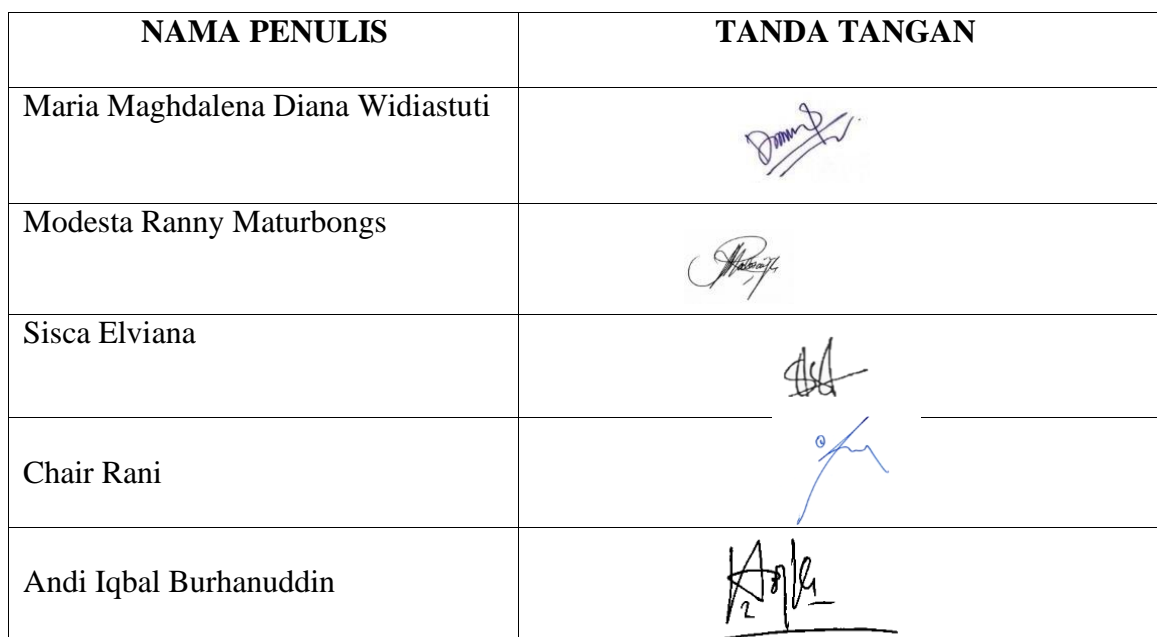 NAMA PENULIS TANDA TANGAN
Maria Maghdalena Diana Widiastuti
Modesta Ranny Maturbongs
Sisca Elviana
Chair Rani
Andi Iqbal Burhanuddin